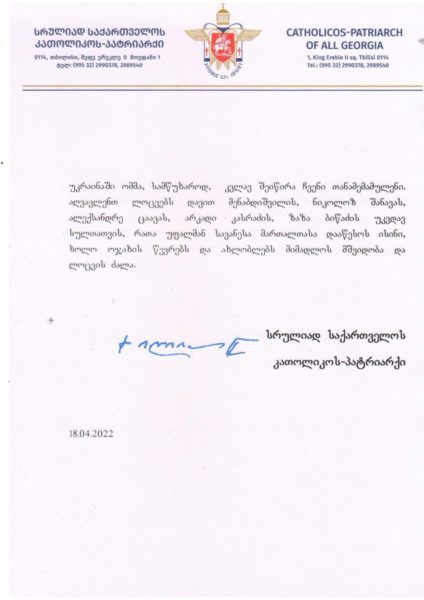 სრულიად საქართველოს
კათოლიკოს-პატრიარქი
0114, თბილისი, მეფე ერეკლე II მოედანი 1
ტელ: (995 32) 2990378, 2989540
CATHOLICOS-PATRIARCH
OF ALL GEORGIA
1, King Erekle II sq. Tbilisi 0114
Tel.: (995 32) 2990378, 2989540
უკრაინაში ომმა, სამწუხაროდ, კვლავ შეიწირა ჩვენი თანამემამულენი.
აღვავლენთ ლოცვებს დავით მენაბდიშვილის, ნიკოლოზ შანავას,
ალექსანდრე ცაავას, არკადი კასრაძის, ზაზა ბიწაძის უკვდავ
სულთათვის, რათა უფალმან სავანესა მართალთასა დააწესოს ისინი,
ხოლო ოჯახის წევრებს და ახლობლებს მიმადლოს მშვიდობა და
ლოცვის ძალა.
სრულიად საქართველოს
კათოლიკოს-პატრიარქი
18.04.2022